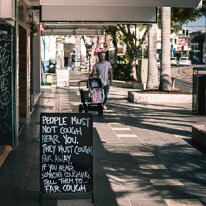 PEOPLE MUST
NOT COUGH
NEAR YOU.
THEY MUST COUGH
FAR AWAY
IF YOU HEAR
SOMEONE
COUGHING,
TELL THEM TO...
FAR COUGH